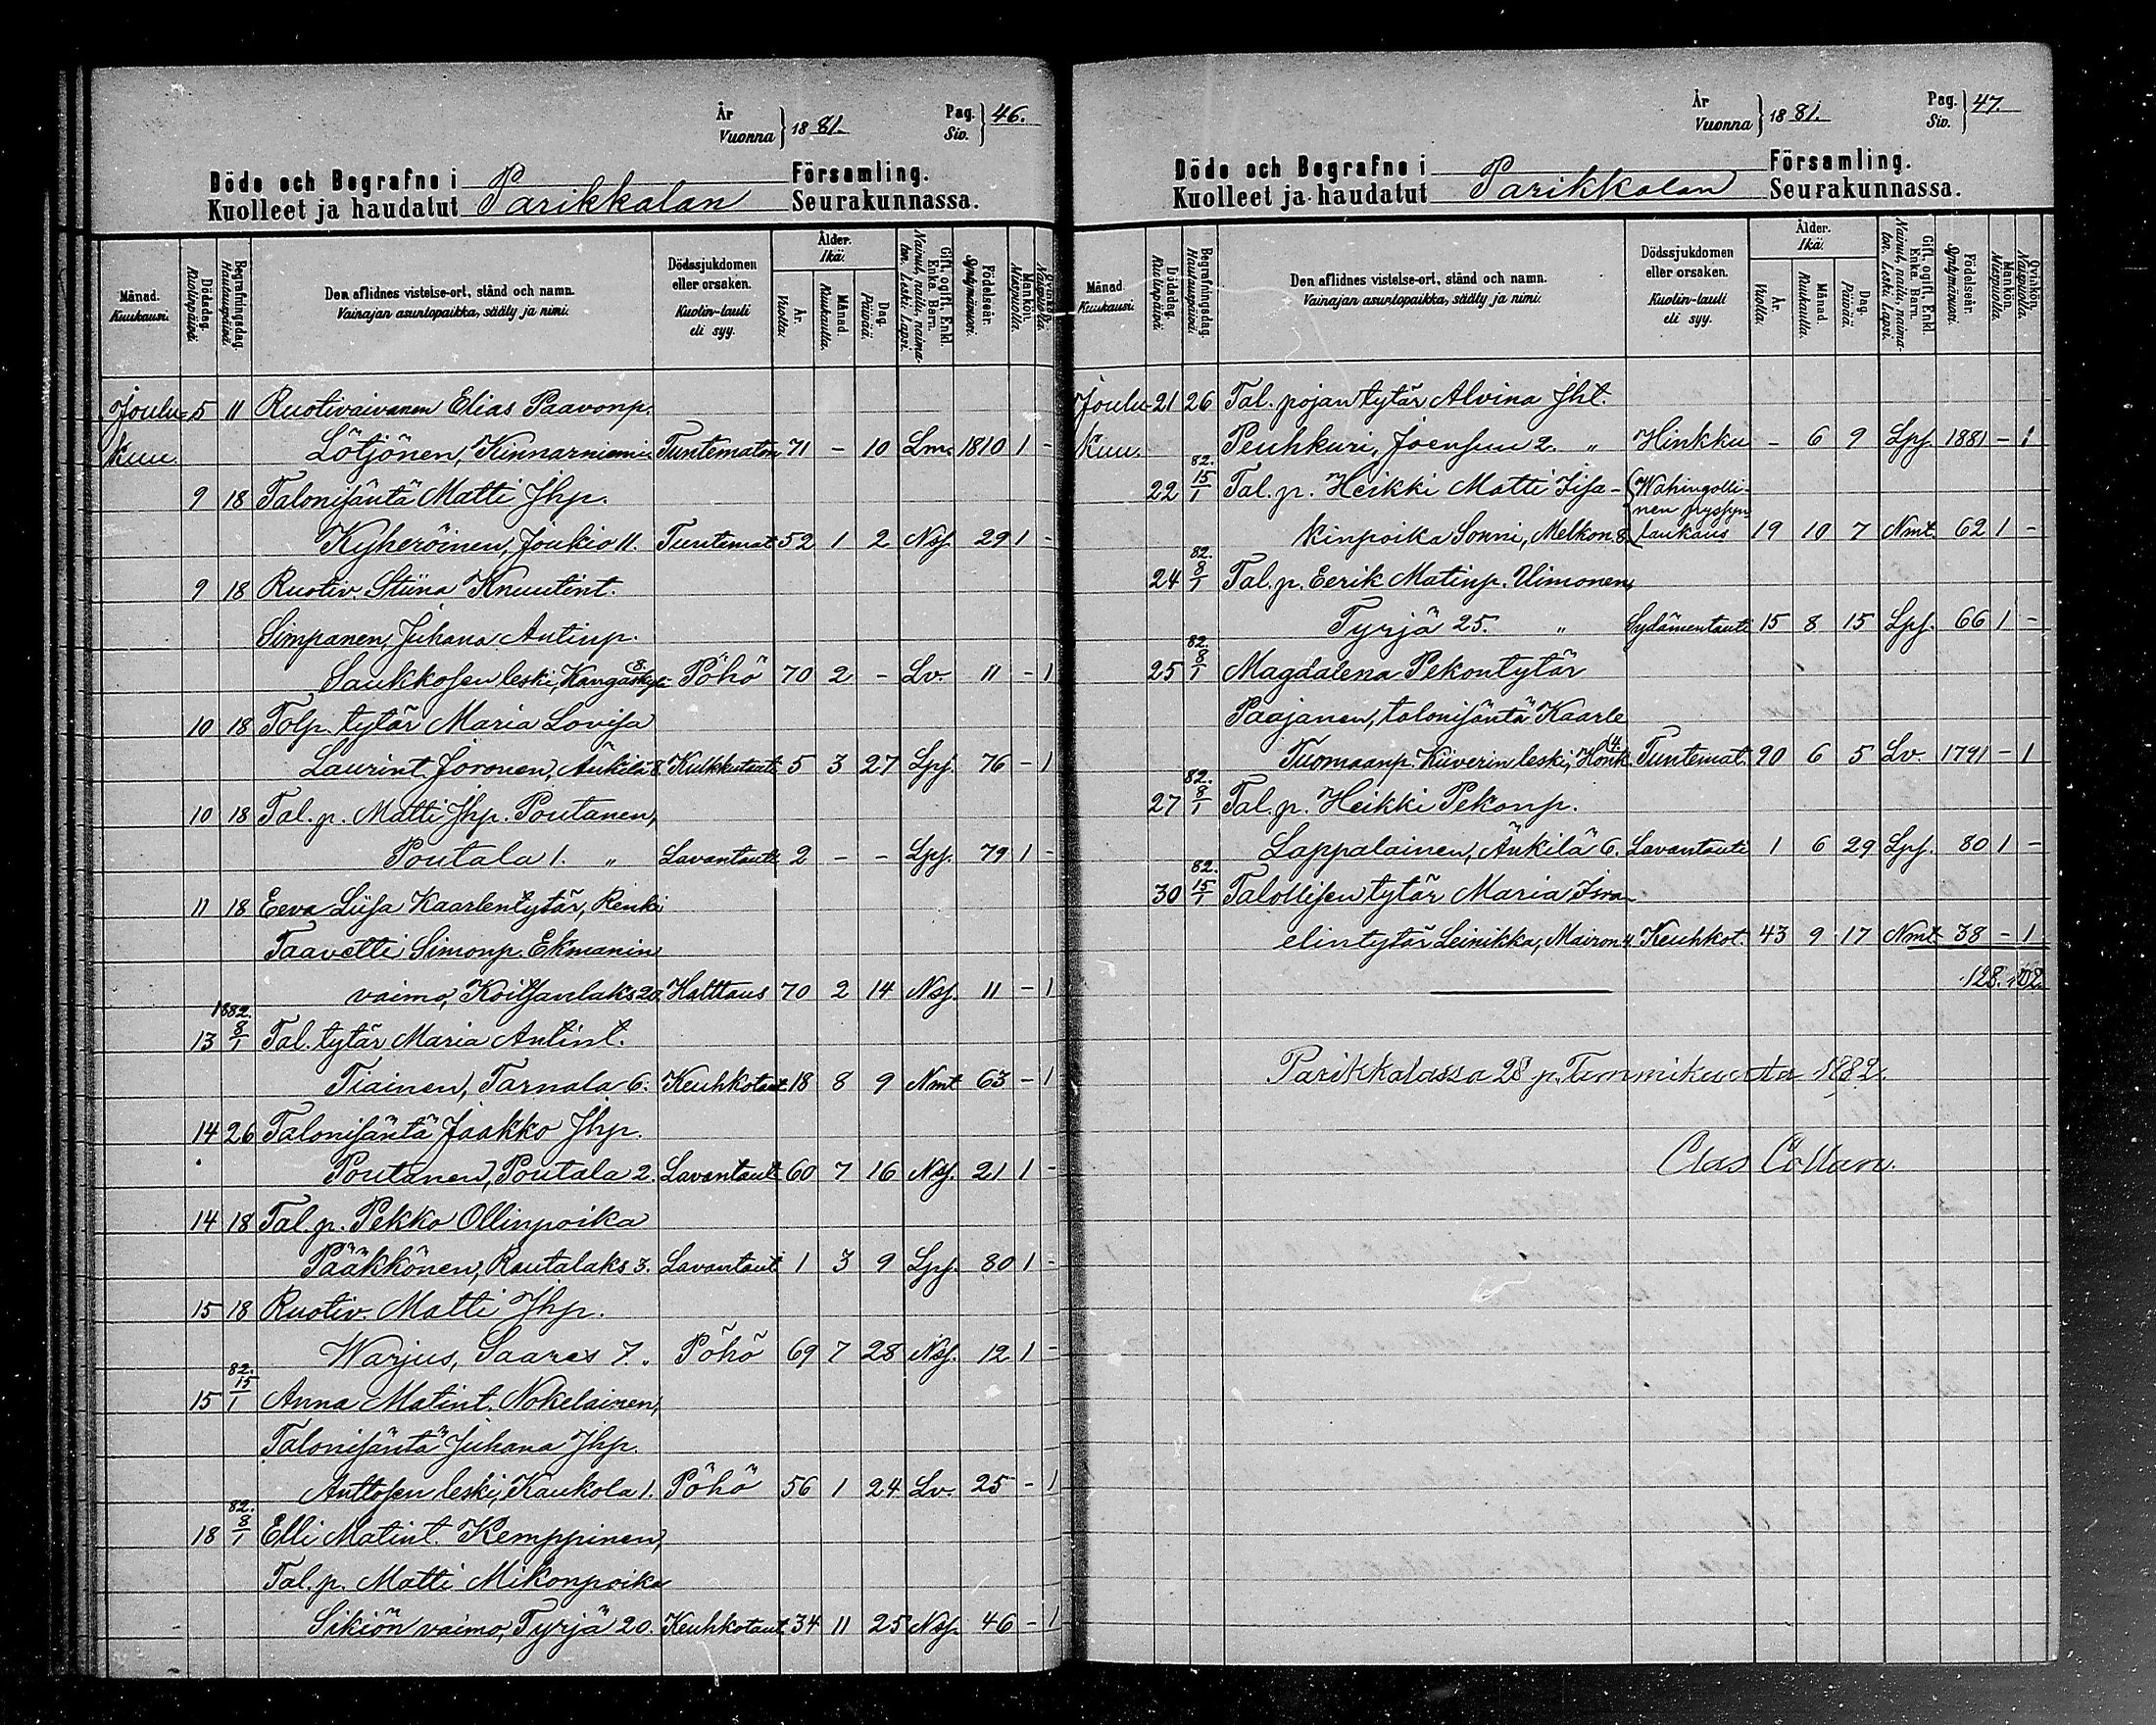 År
Vuonna } 1881.
Pag.
Siv. } 46.
Döde och Begrafne i Parikkalan Församling.
Kuolleet ja haudatut Seurakunnassa.
Månad. Kuukausi.
Dödsdag. Kuolinpäivä.
Begrafningsdag. Hautauspäivä.
Den aflidnes vistelse-ort, stånd och namn.
Vainajan asuntopaikka, sääty ja nimi.
Dödssjukdomen eller orsaken.
Kuolin-tauti eli syy.
Ålder. Ikä.
År. Vuotta.
Månad. Kuukautta.
Dag. Päivää.
Gift, ogift, Enkl. Enka. Barn.
Nainut, naitu, naimaton. Leski. Lapsi.
Födelseår. Syntymävuosi.
Mankön. Miespuolia.
Qvinkön. Naispuolia.
Joulu= 5 11 Ruotivaivanen Elias Paavonp.
kuu. Lötjönen, Kinnarniemi Tuntematon 71 - 10 Lm. 1810 1 -
9 18 Talonisäntä Matti Jhp.
Kyheröinen, Joukio 11. Tuntemat 52 1 2 Nsf. 29 1 -
9 18 Ruotiv. Stiina Knuutint.
Simpanen, Juhana Antinp.
Saukkosen leski, Kangaskyl. 8. Pöhö 70 2 - Lv. 11 - 1
10 18 Tolp. tytär Maria Lovisa
Laurint. Joronen, Änkilä 8. Kulkkutauti 5 3 27 Lpf. 76 - 1
10 18 Tal. p. Matti Jhp. Poutanen,
Poutala 1. " Lavantauti 2 - - Lpf. 79 1 -
11 18 Eeva Liisa Kaarlentytär, Renki
Taavetti Simonp. Ekmanin
vaimo, Koitsanlaks 20. Halttaus 70 2 14 Nsf. 11 - 1
1882.
13 8/1 Tal. tytär Maria Antint.
Tiainen, Tarnala 6. Keuhkotaut 18 8 9 Nmt 63 - 1
14 26 Talonisäntä Jaakko Jhp.
Poutanen, Poutala 2. Lavantaut 60 7 16 Nsf. 21 1 -
14 18 Tal. p. Pekko Ollinpoika
Pääkkönen, Rautalaks 3. Lavantaut 1 3 9 Lpf. 80 1 -
15 18 Ruotiv. Matti Jhp.
Warjus, Saares 7. Pöhö 69 7 28 Nsf. 12 1 -
82.
15 15/1 Anna Matint. Nokelainen,
Talonisäntä Juhana Jhp.
Anttosen leski, Kaukola 1. Pöhö 56 1 24 Lv. 25 - 1
82.
18 8/1 Elli Matint. Kemppinen,
Tal. p. Matti Mikonpoika
Sikiön vaimo, Tyrjä 20. Keuhkotaut 34 11 25 Nsf. 46 - 1
År
Vuonna } 1881.
Pag.
Siv. } 47.
Döde och Begrafne i Parikkalan Församling.
Kuolleet ja haudatut Seurakunnassa.
Månad. Kuukausi.
Dödsdag. Kuolinpäivä.
Begrafningsdag. Hautauspäivä.
Den aflidnes vistelse-ort, stånd och namn.
Vainajan asuntopaikka, sääty ja nimi.
Dödssjukdomen eller orsaken.
Kuolin-tauti eli syy.
Ålder. Ikä.
År. Vuotta.
Månad. Kuukautta.
Dag. Päivää.
Gift, ogift, Enkl. Enka. Barn.
Nainut, naitu, naimaton. Leski. Lapsi.
Födelseår. Syntymävuosi.
Mankön. Miespuolia.
Qvinkön. Naispuolia.
Joulu- 21 26 Tal. pojan tytär Alvina Jht.
kuu. Peuhkuri, Joensuu 2. " Hinkku - 6 9 Lpf. 1881 - 1
82.
22 15/1 Tal. p. Heikki Matti Iisa- Wahingolli-
nen pyssyn
kinpoika Sonni, Melkon. 8. laukaus 19 10 7 Nmt. 62 1 -
82.
24 8/1 Tal. p. Eerik Matinp. Uimonen,
Tyrjä 25. " Sydämentauti 15 8 15 Lpf. 66 1 -
82.
25 8/1 Magdalena Pekontytär
Paajanen, talonisäntä Kaarle
Tuomaanp. Kiiverin leski, Honk. 4. Tuntemat. 90 6 5 Lv. 1791 - 1
82.
27 8/1 Tal. p. Heikki Pekonp.
Lappalainen, Änkilä 6. Lavantauti 1 6 29 Lpf. 80 1 -
82.
30 15/1 Talollisen tytär Maria Isra-
elintytär Leinikka, Mairon. 4. Keuhkot. 43 9 17 Nmt 38 - 1
128. 102.
Parikkalassa 28 p. Tammikuuta 1882.
Clas Collan.